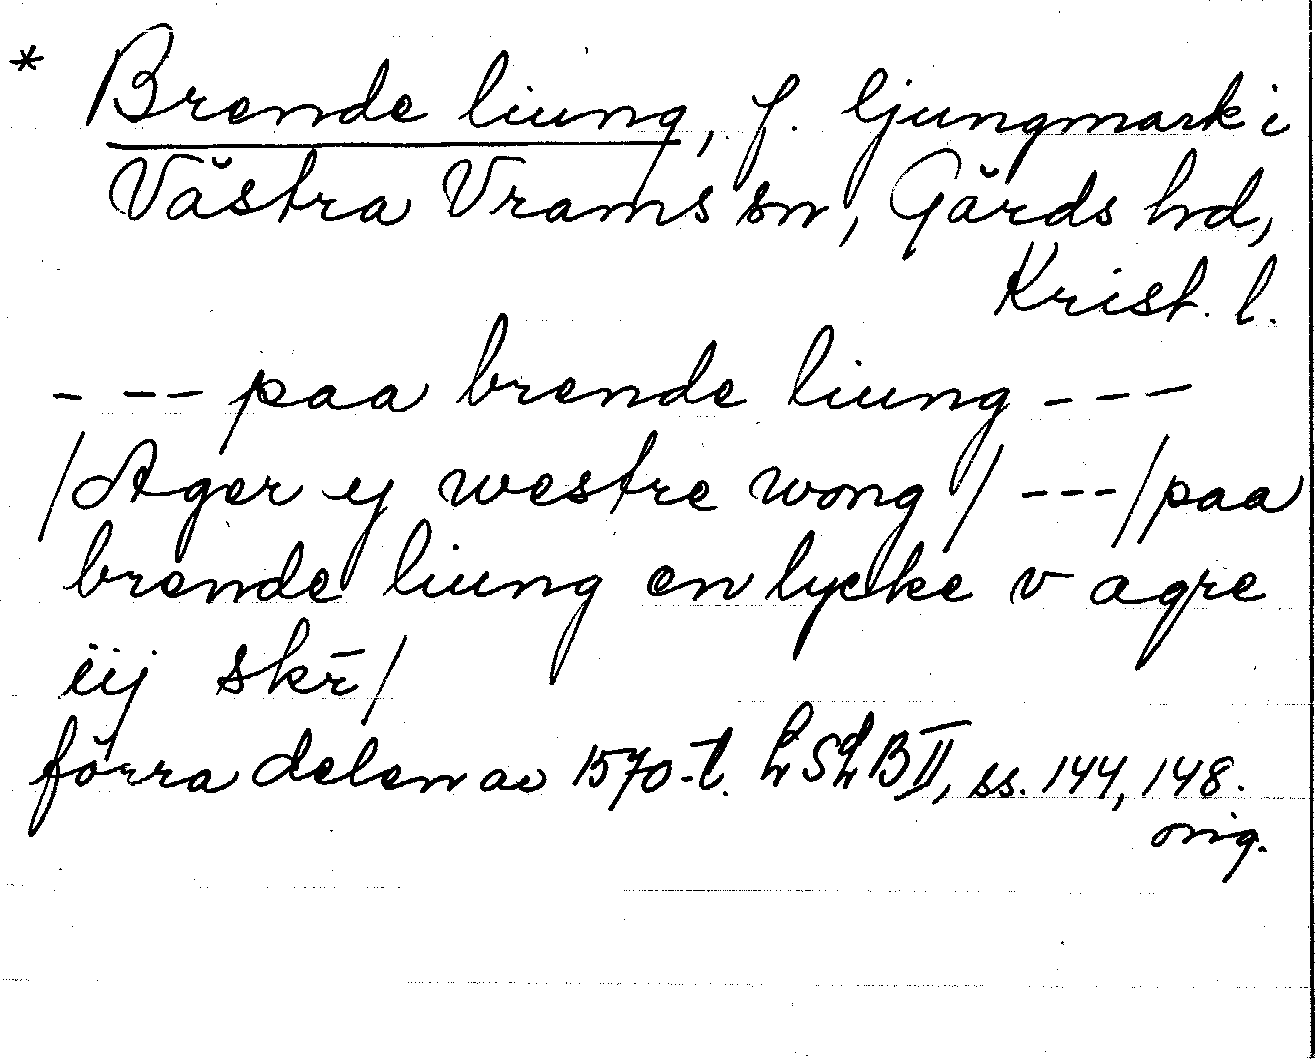 * Brende liung, f. ljungmark i
Västra Vrams sn, Gärds hd,
Krist. l.
- - - paa brende liung - - -
/Ager ij westre wong / - - - / paa
brende liung en lycke v agre
iij skr̄/
förra delen av 1570-t. LSLB II, ss. 144, 148.
orig.